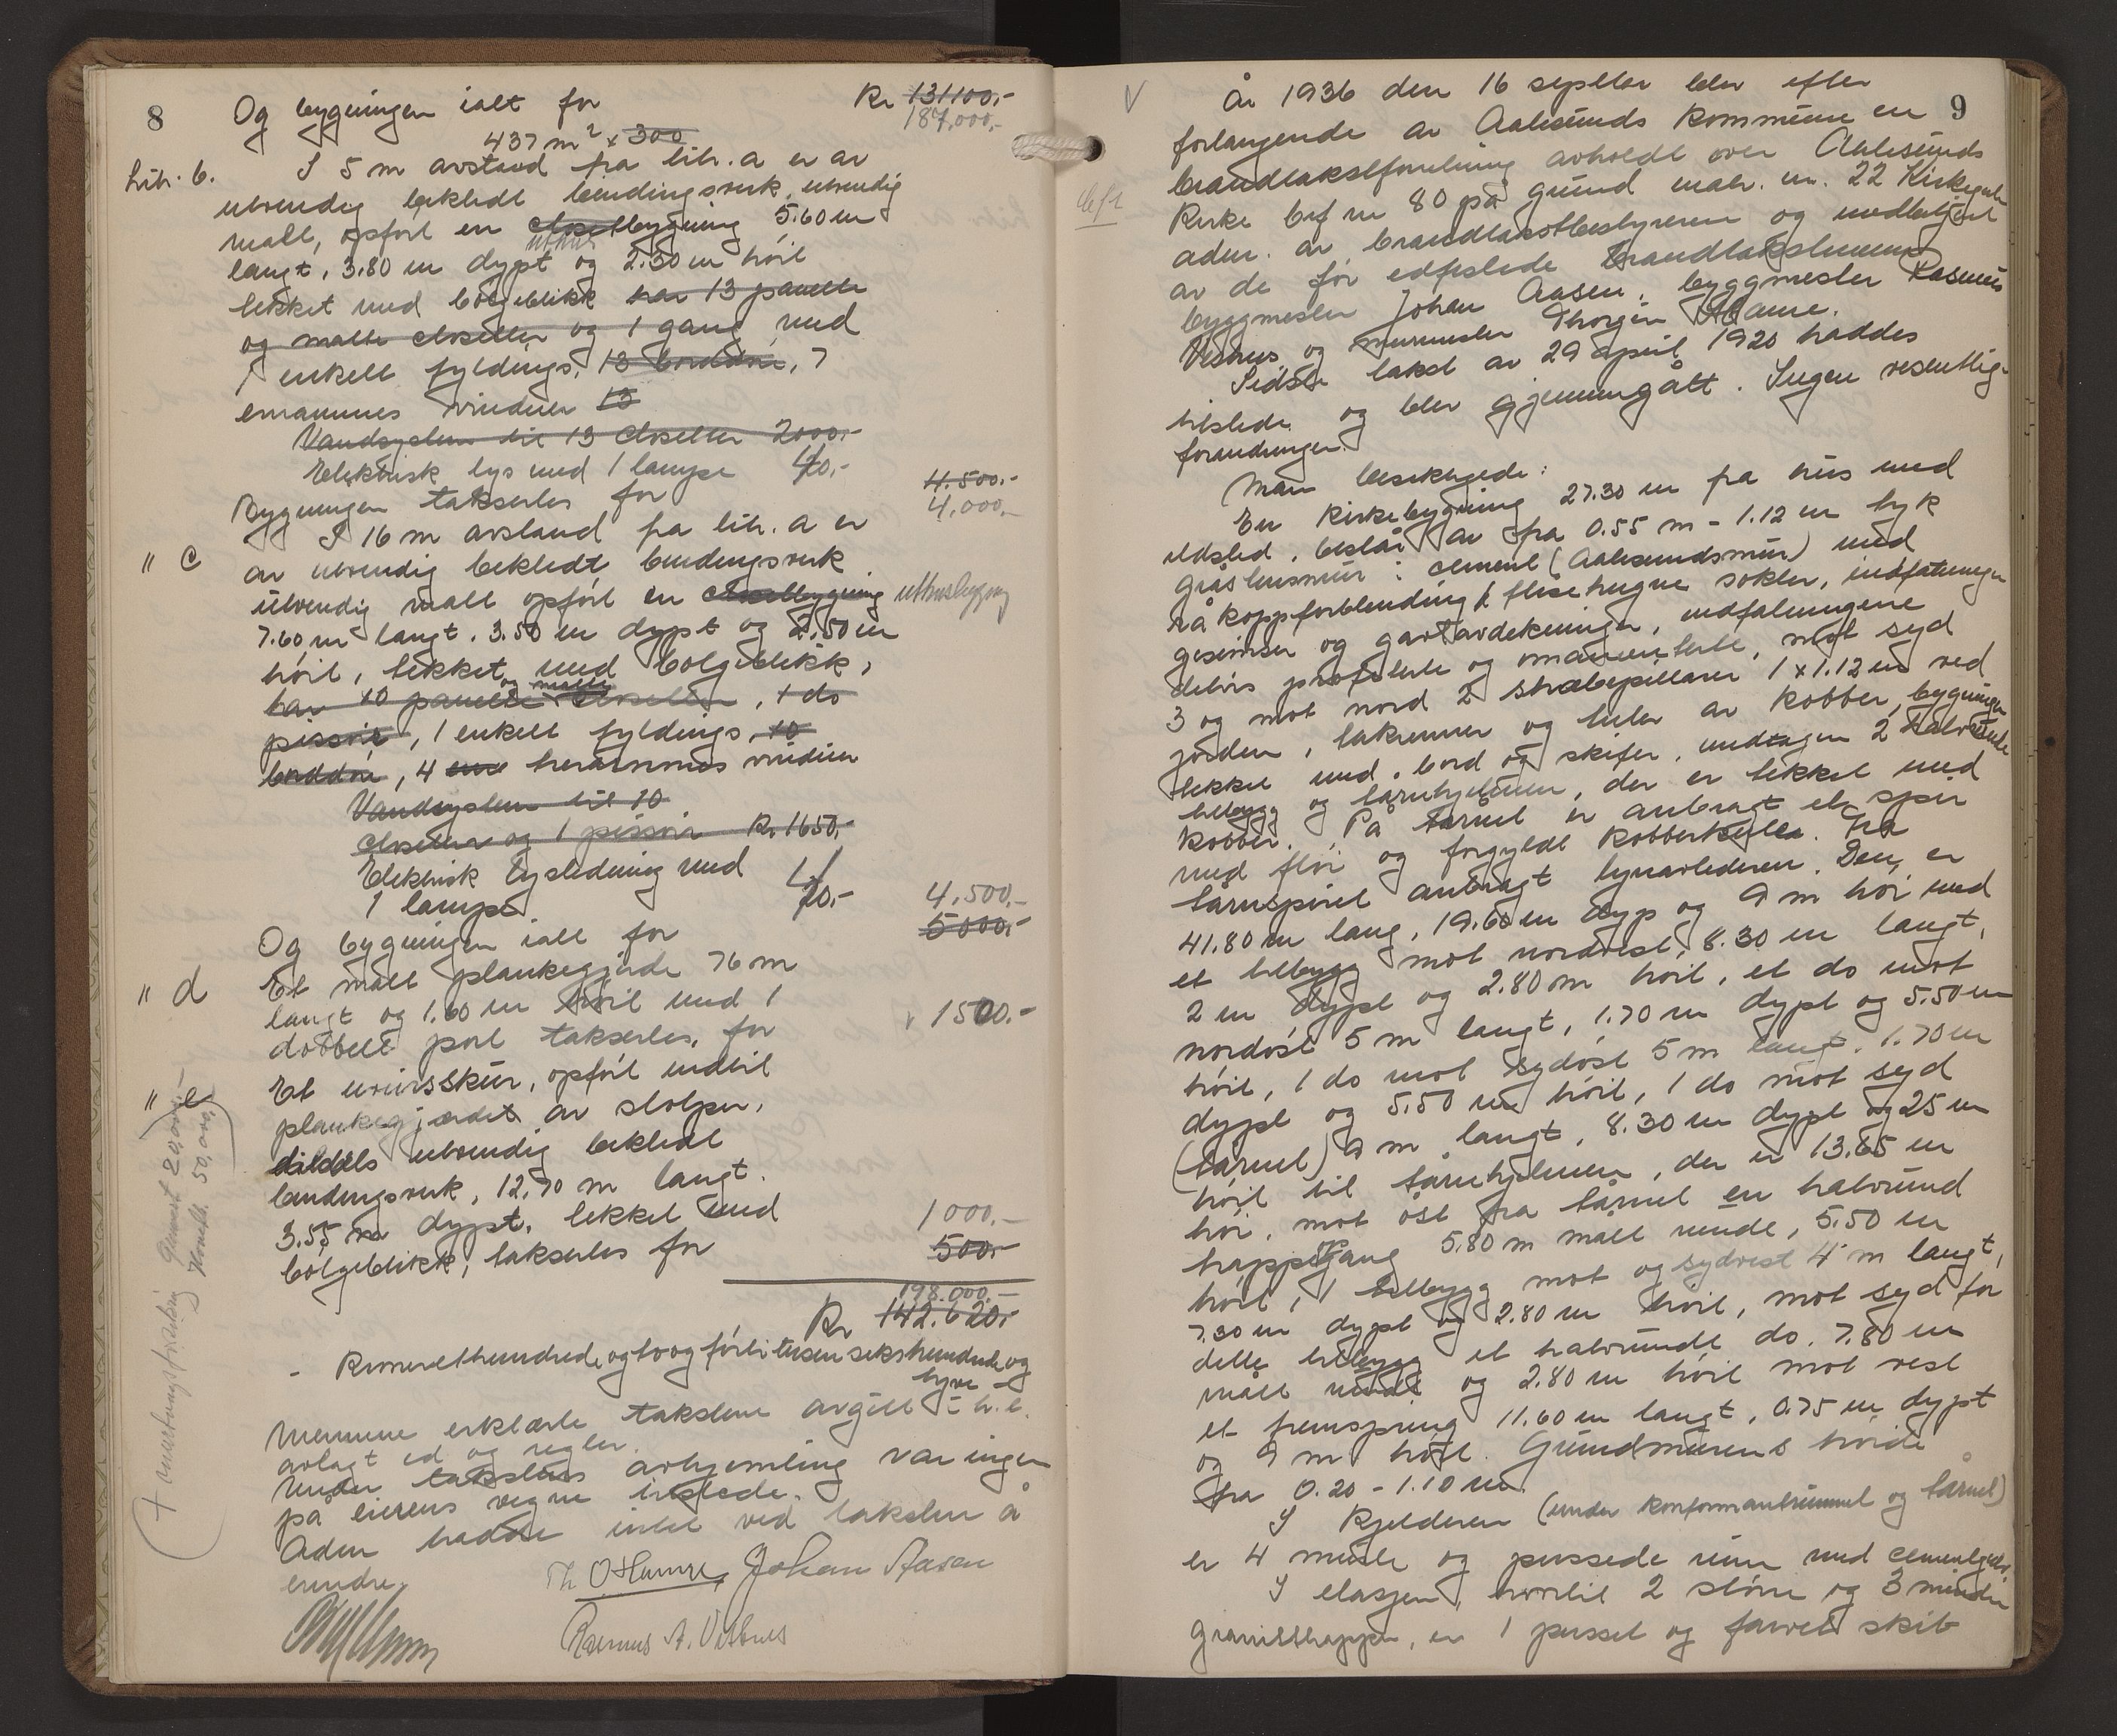 8
Og bygningen ialt for Kr 131100.-
187,000.-
437 m² x 300
Litr. b. I 5 m avstand fra litr. a er av
utvendig beklædt bindingsverk, utvendig
malt, opført en closetbygning 5.60 m
uthus
langt, 3.80 m dypt og 2.50 m høit
tekket med bølgeblikk har 13 panelte
og malte closetter og 1 gang med
1 enkelt fyldings, 13 borddøre, 7
enrammes vinduer 13
Vandsystem til 13 closetter 2000.-
Elektrisk lys med 1 lampe 40.-
Bygningen takseres for 4.500.-
4.000.-
" c I 16 m avstand fra litr. a er
av utvendig beklædt bindingsverk
utvendig malt opført en closetbygning uthusbygning
7.60 m langt, 3.50 m dypt og 2.50 m
høit, tekket med bølgeblikk,
har 10 panelte og malte closetter, 1 do
pissoir, 1 enkelt fyldings, 10
borddøre, 4 trerammes vinduer
Vandsystem til 10
closetter og 1 pissoir Kr. 1650.-
Elektrisk lysledning med
1 lampe 40.-
Og bygningen ialt for 4,500.-
5000.-
" d Et malt plankegjerde 76 m
langt og 1.60 m høit med 1
dobbelt port takseres for 1500.-
" e Et urinsskur, opført indtil
plankegjærdet av stolper,
utvendig beklædt
bindingsverk, 12.70 m langt.
3.55 m dypt, tekket med
bølgeblikk, takseres for 1000.-
500.-
198.000.-
Kr 142.620.-
- Kroner etthundrede og to og førti tusen sekshundrede og
tyve -
Mennene erklærte taksten avgitt i h.t.
avlagt ed og regler.
Under takstens avhjemling var ingen
på eierens vegne tilstede.
Aden hadde intet ved taksten å
erindre.
Th. O Hamre, Johan Aasen
Rasmus A. Vestnes
9
År 1936 den 16 septbr blev efter
forlangende av Aalesunds Kommune en
brandtakstforretning avholdt over Aalesunds
Kirke bf nr 80 på grund matr. nr. 22 Kirkegaten
adm. av brandtakstbestyreren og medbetjent
av de før edfestede brandtakstmenn
byggmester Johan Aasen, byggmester Rasmus
Vestnes og murmester Thorgin Hamre.
Sidste takst av 29 april 1920 haddes
tilstede og blev gjennemgått. Ingen vesentlige
forandringer.
Man besiktigede:
En kirkebygning 27.30 m fra hus med
ildsted, består av fra 0.55 m - 1.12 m tyk
gråstensmur i cement (Aalesundsmur) med
råkoppforblending, flisehugne sokler, indfatninger
gesimser og gavlavdekninger, indfatningene
delvis profilerte og ornamenterte, mot syd
3 og mot nord 2 stræbepillarer 1 x 1.12 m ved
jorden, takrenner og beter av kobber, bygningen
tekket med bord og skifer, undtagen 2 halvrunde
tilbygg og tårnhjelmen, der er tekket med
kobber. På tårnet er anbragt et spir
med fløi og forgyldt kobberkule. Fra
tårnspiret anbragt lynavlederen. Den er
41.80 m lang, 19.60 m dyp og 9 m høi med
et tilbygg mot nordvest, 8.30 m langt,
2 m dypt og 2.80 m høit, et do mot
nordøst 5 m langt, 1.70 m dypt og 5.50 m
høit, 1 do mot sydøst 5 m langt, 1.70 m
dypt og 5.50 m høit, 1 do mot syd
(tårnet) 9 m langt, 8.30 m dypt og 25 m
høit til tårnhjelmen, der er 13.65 m
høi, mot øst fra tårnet en halvrund
trappopgang 5.80 m målt runde, 5.50 m
høit, 1 tilbygg mot og sydvest 4 m langt,
7.30 m dypt og 2.80 m høit, mot syd for
dette tilbygg et halvrundt do. 7.80 m
målt rundt og 2.80 m høit mot vest
et fremspring 11.60 m langt, 0.75 m dypt
og 9 m høit. Grundmurens høide
fra 0.20 - 1.10 m.
I Kjelderen (under konfirmantrummet og tårnet)
er 4 murte og pussede rum med cementgulv.
I etasjen, hvortil 2 større og 3 mindre
granittrapper, er 1 pusset og farvet skib
+ murtungsfritilæg
50,000.-